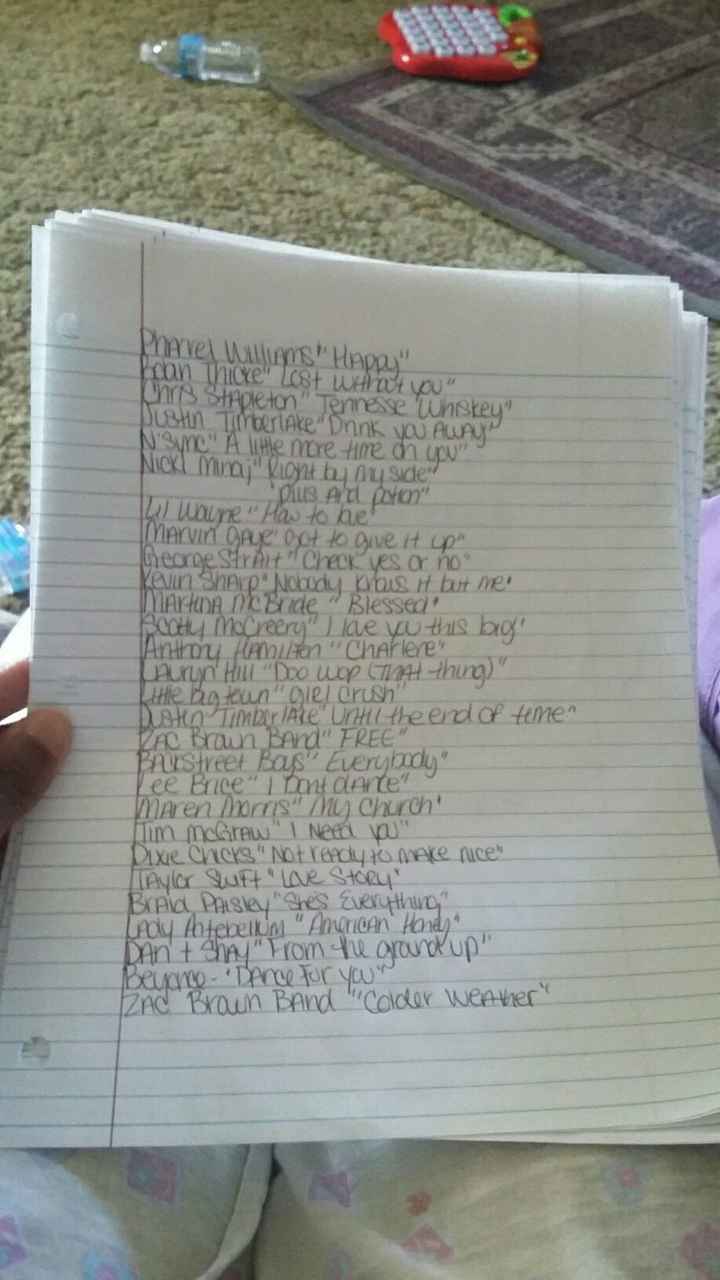 Pharrel Williams "Happy"
Roban Thicke "Lost without you"
Chris Stapleton "Tennesse Whiskey"
Justin Timberlake "Drink you Away"
N'Sync "A little more time on you"
Nicki Minaj "Right by my side"
"pills And potion"
Lil Wayne "How to love"
Marvin Gaye "Got to give it up"
George Strait "Check yes or no"
Kevin Sharp "Nobody knows it but me"
Martina McBride "Blessed"
Scotty McCreery "I love you this big"
Anthony Hamilton "Charlene"
Lauryn Hill "Doo Wop (That thing)"
Little big town "Girl Crush"
Justin Timberlake "Until the end of time"
Zac Brown Band "FREE"
Backstreet Boys "Everybody"
Lee Brice "I Dont dance"
Maren Morris "My Church"
Tim McGraw "I Need you"
Dixie Chicks "Not ready to make nice"
Taylor Swift "Love Story"
Braid Paisley "She's Everything"
Lady Antebellum "American Honey"
Dan + Shay "From the ground up"
Beyonce - "Dance For you"
Zac Brown Band "Colder Weather"